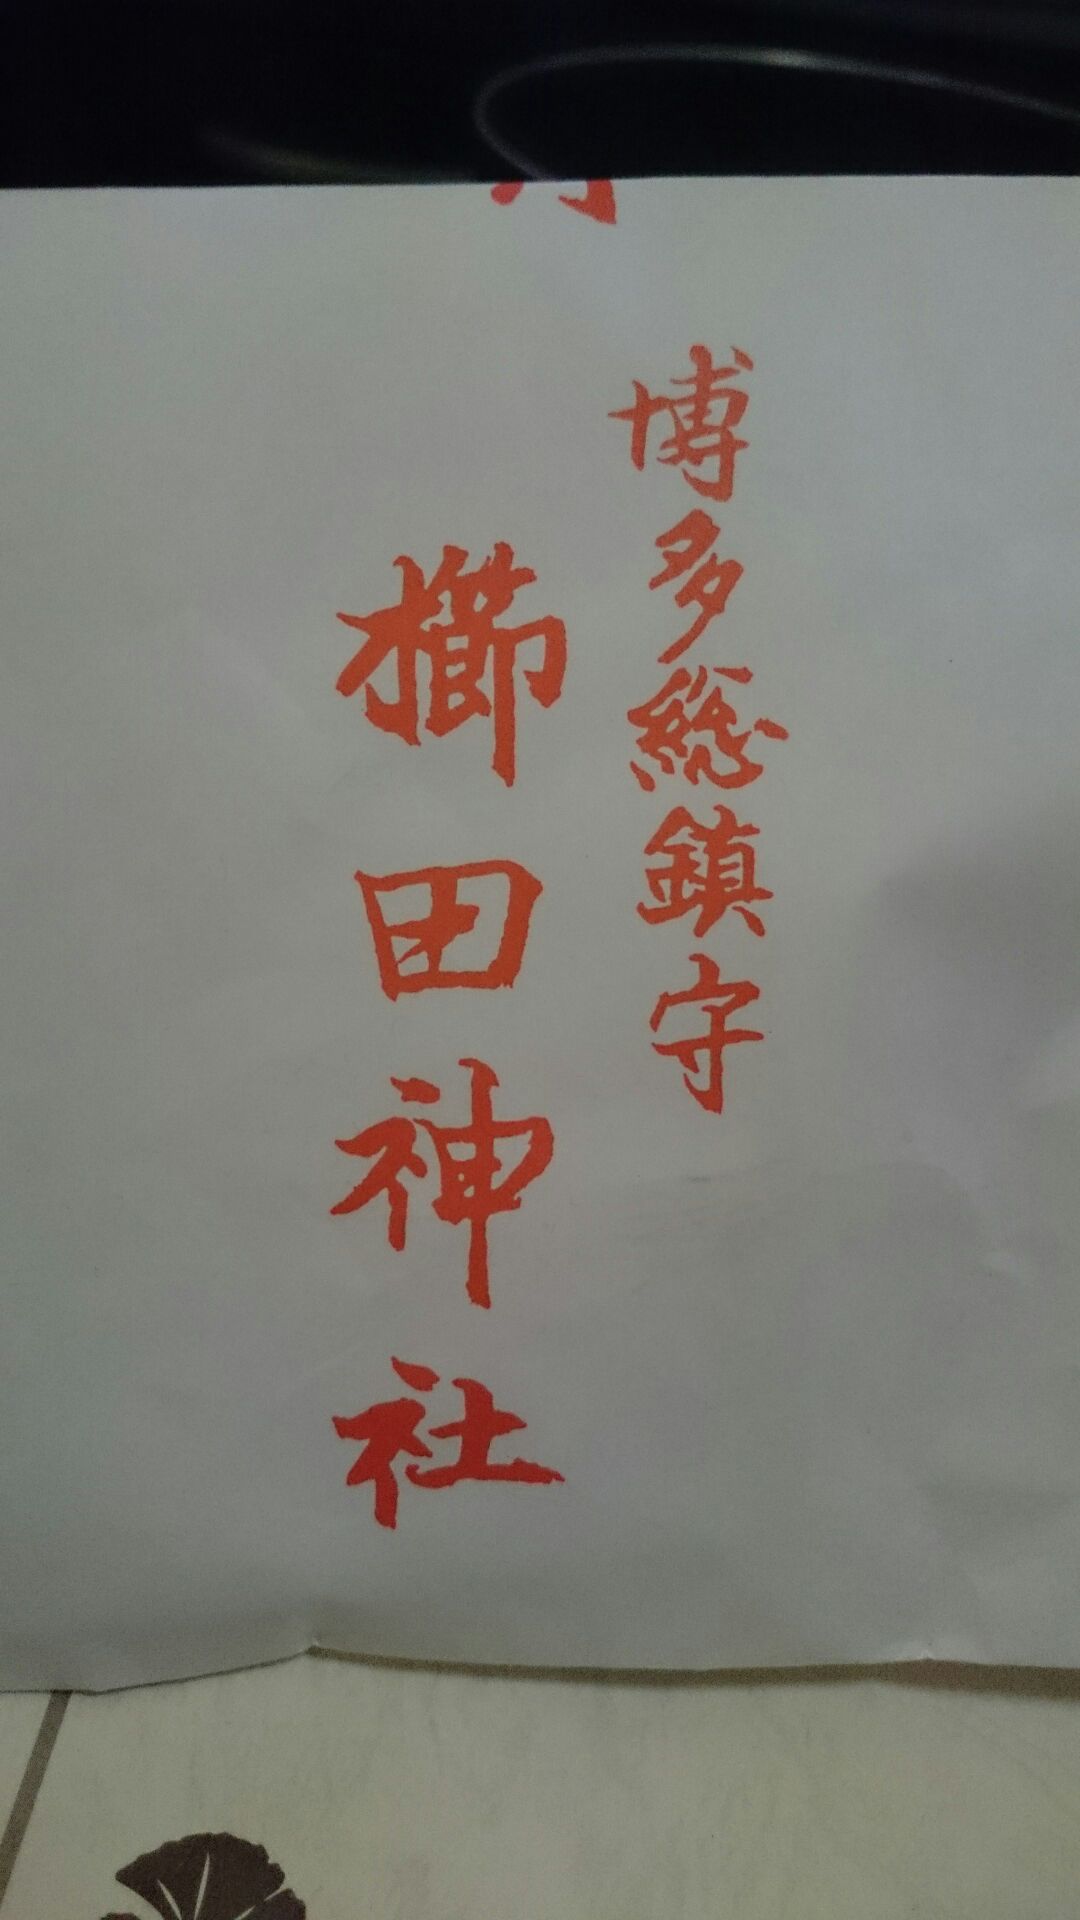 博多総鎮守
櫛田神社